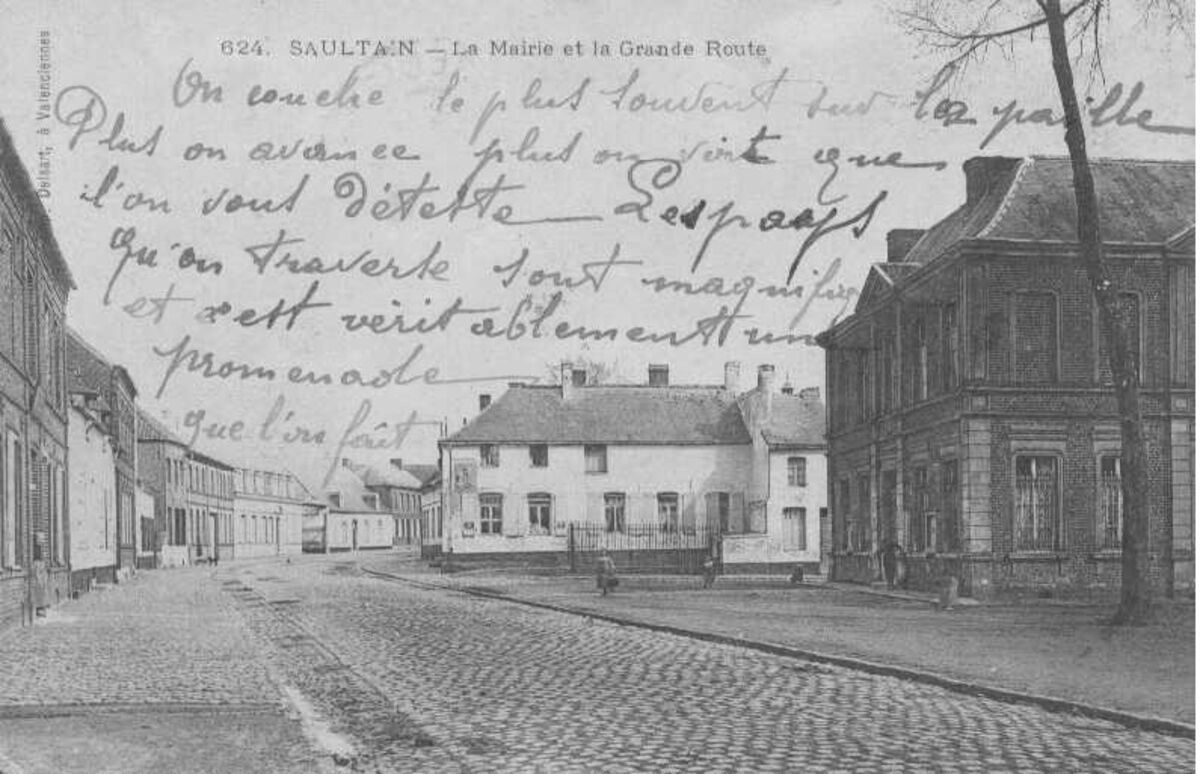 624. SAULTAIN – La Mairie et la Grande Route
Delsart, à Valenciennes
On couche le plus souvent sur la paille
Plus on avance plus on voit que
l'on vous déteste Les pays
Qu'on traverse sont magnifiq
et c'est véritablement une
promenade
que l'on fait